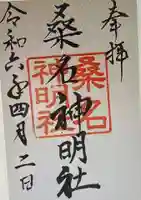 奉拝
桑名
神明社
桑名神明社
令和六年四月二日